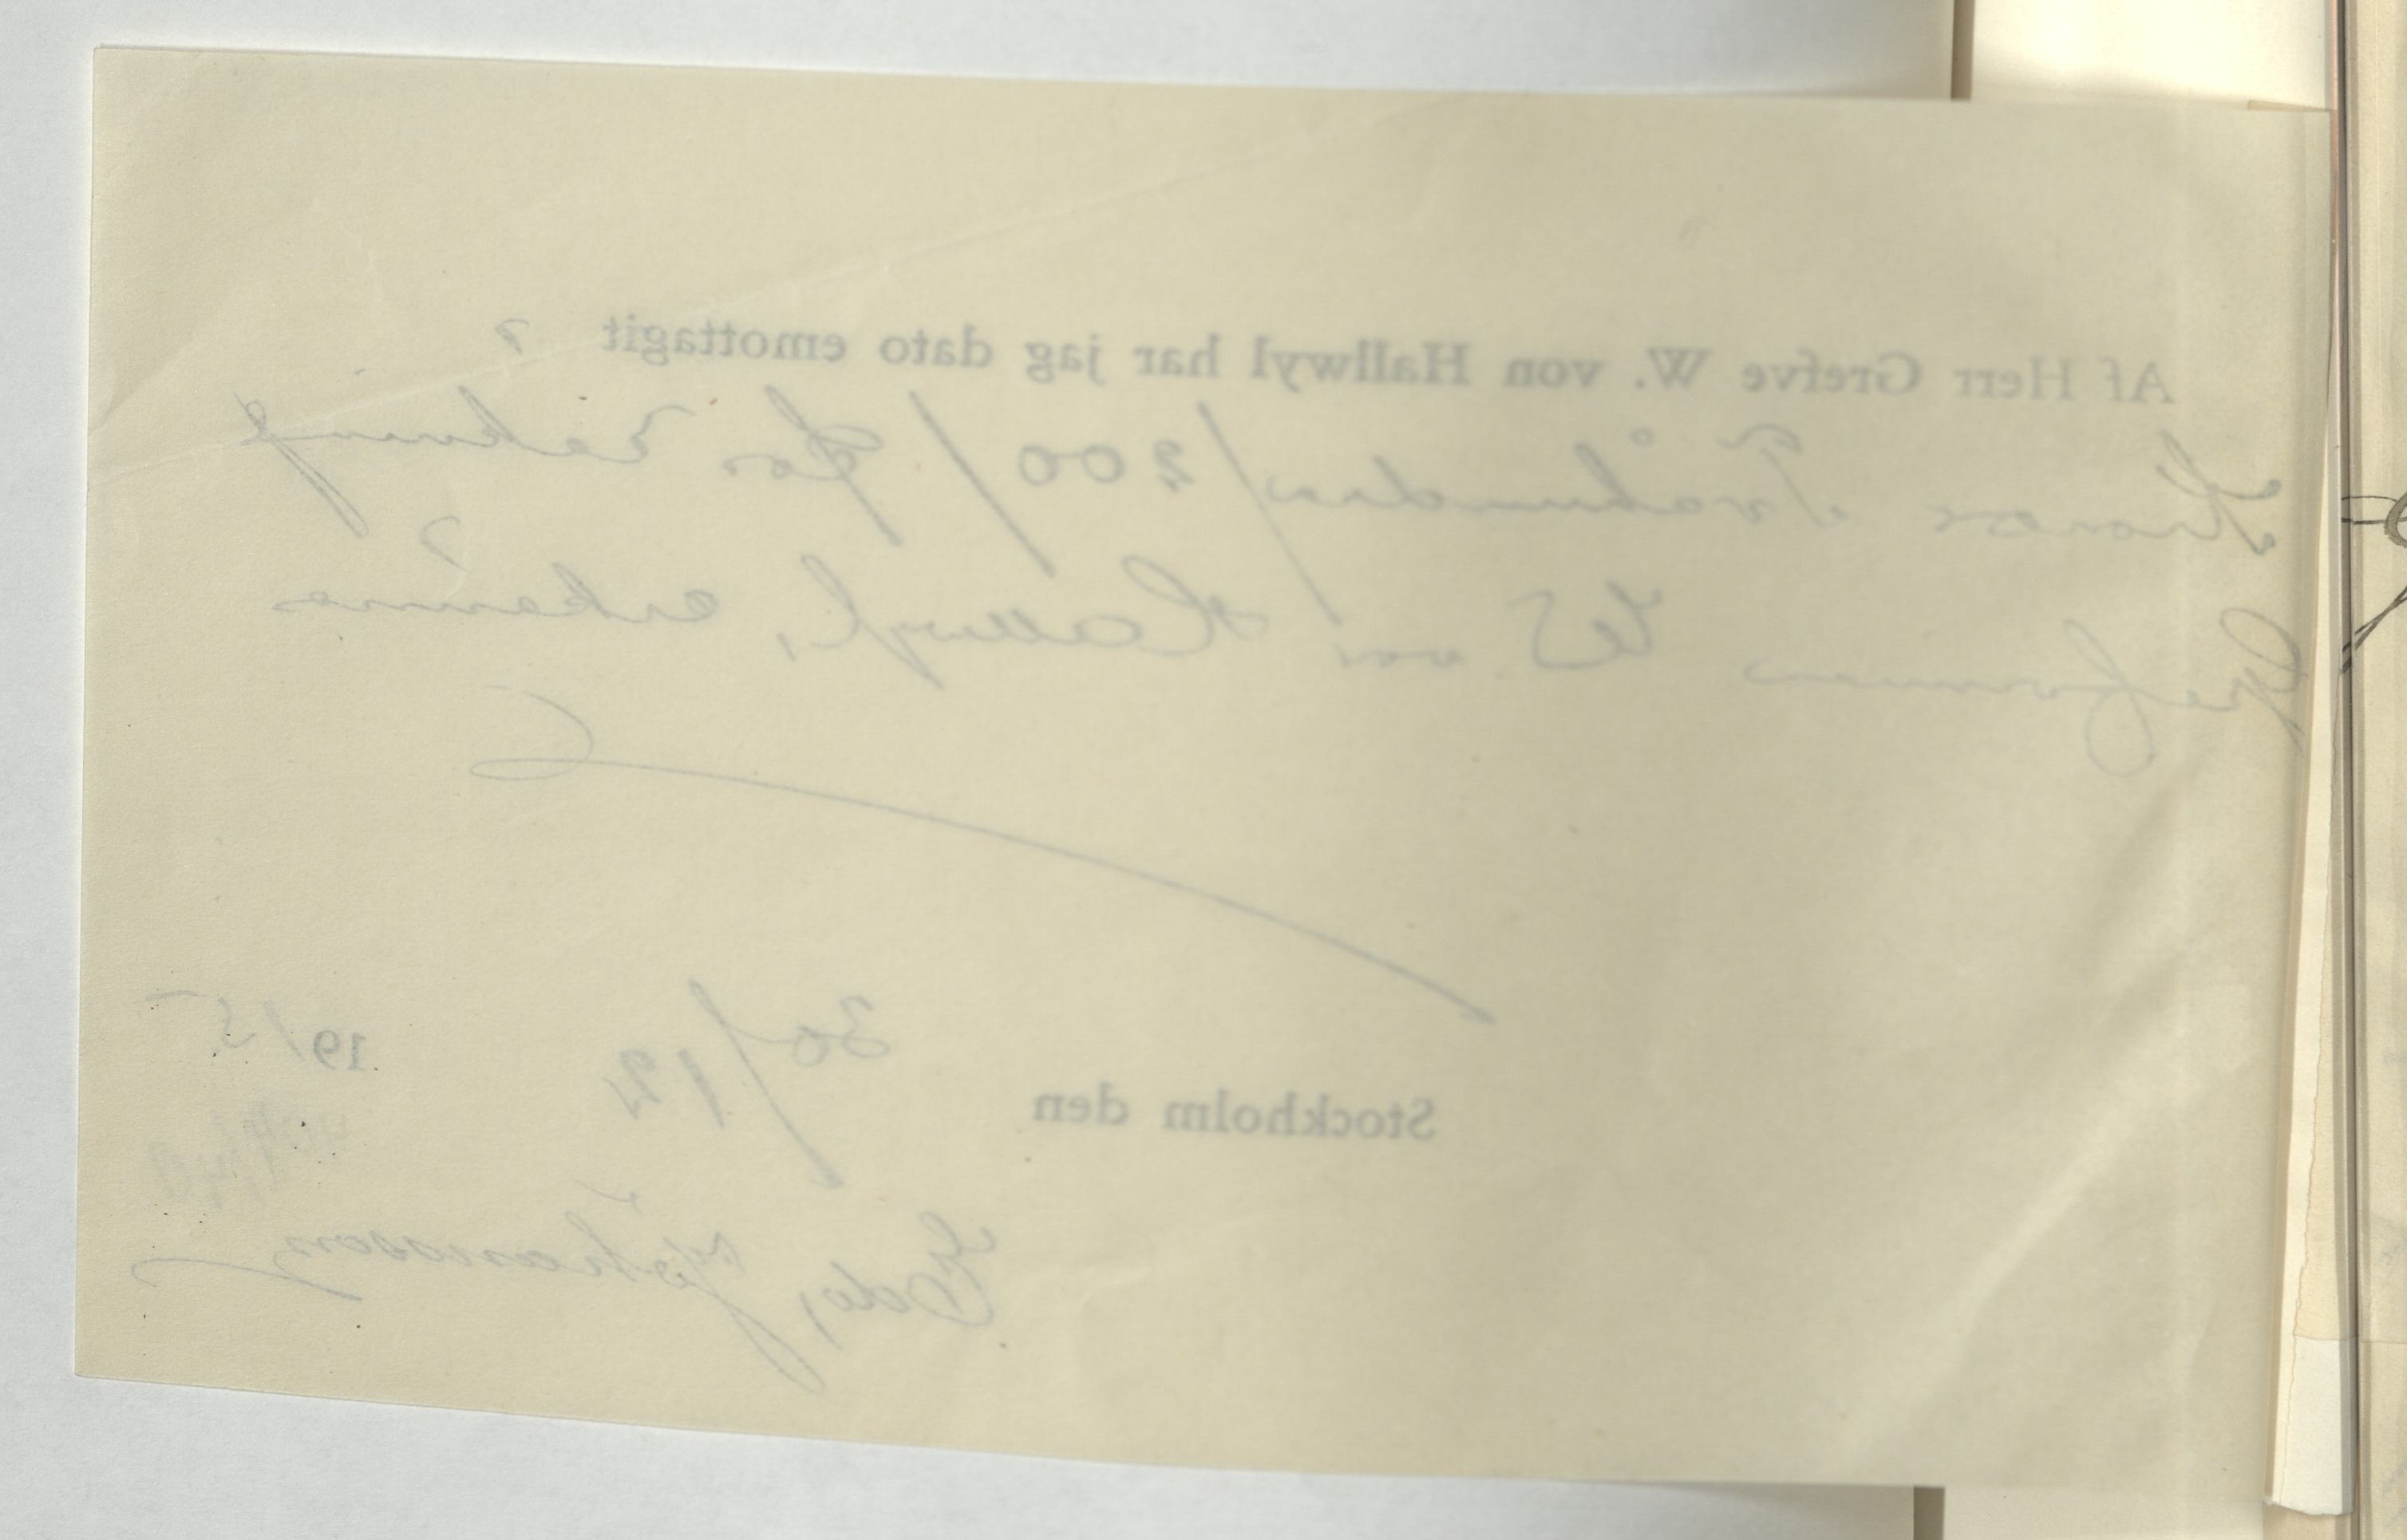 Af Herr Grefve W. von Hallwyl har jag dato emottagit
Kronor Tvåhundra /200/ för räkning
Grefvinnan W von Hallwyl, erkännes
Stockholm den 30/12 1915
Johansson